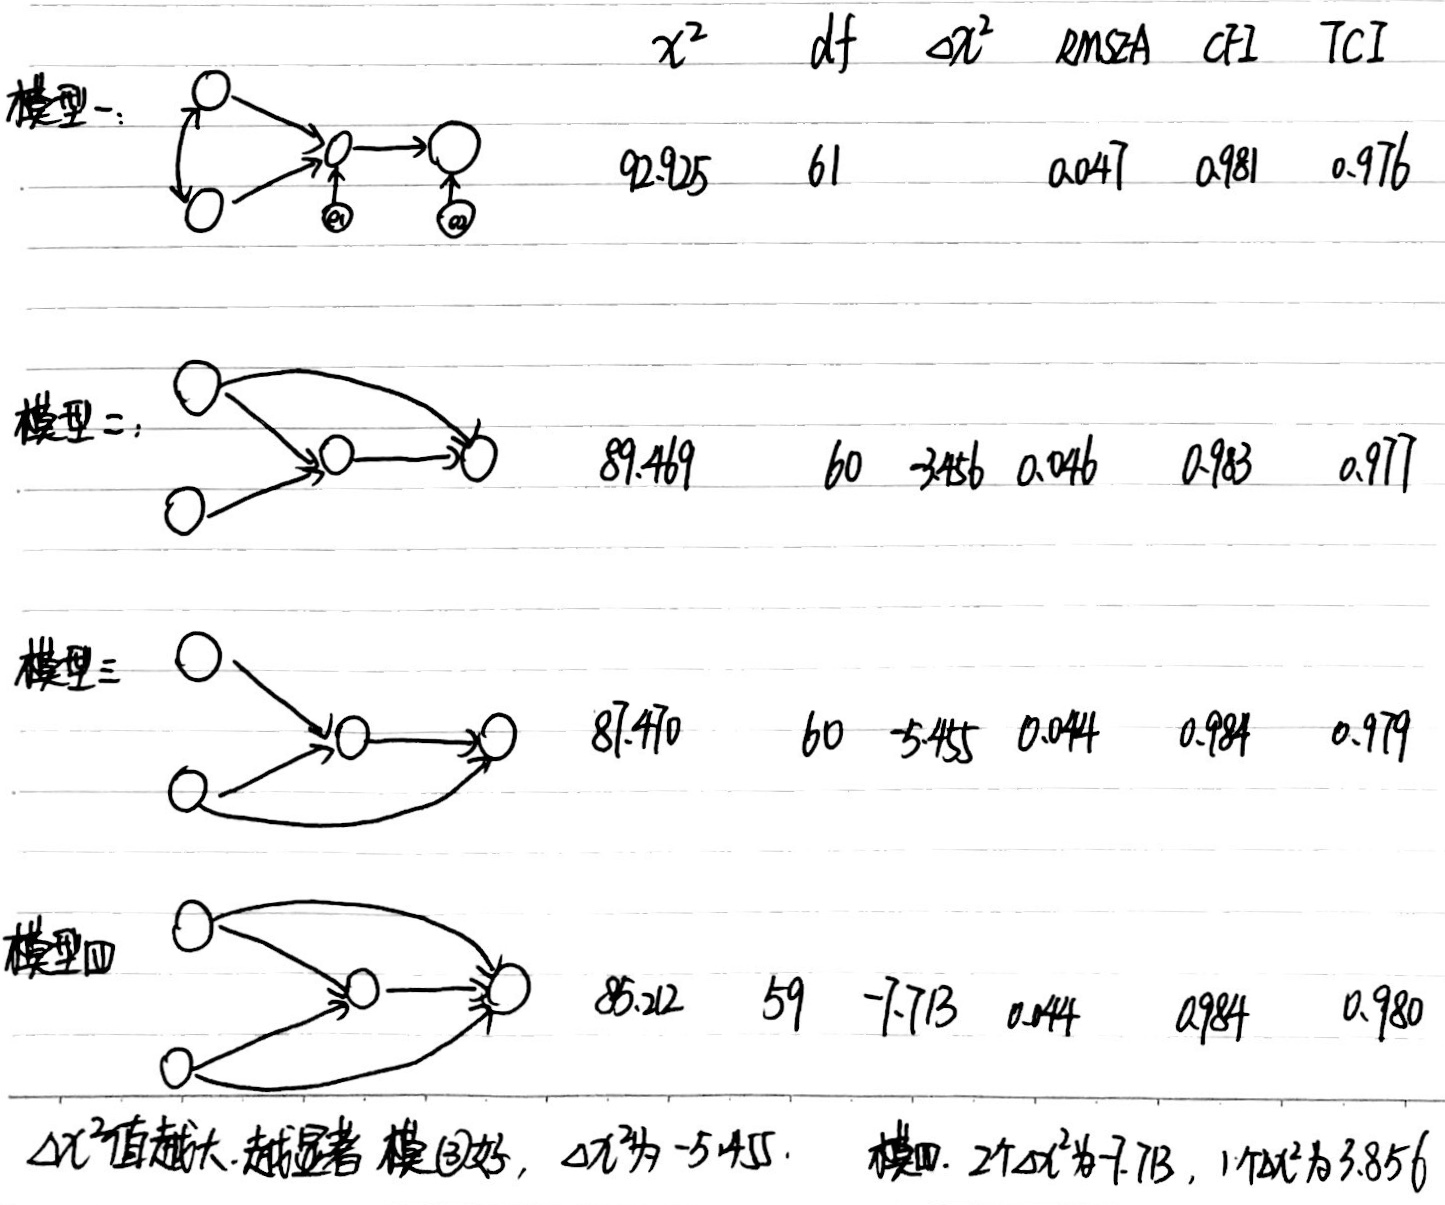 x² df △x² RMSEA CFI TCI
模型一: 92.925 61 0.047 0.981 0.976
e1 e2
模型二: 89.469 60 -3.456 0.046 0.983 0.977
模型三 87.470 60 -5.455 0.044 0.984 0.979
模型四 85.212 59 -7.713 0.044 0.984 0.980
△x²值越大.越显著 模③好, △x²为-5.455. 模四. 2个△x²为-7.713, 1个△x²为3.856